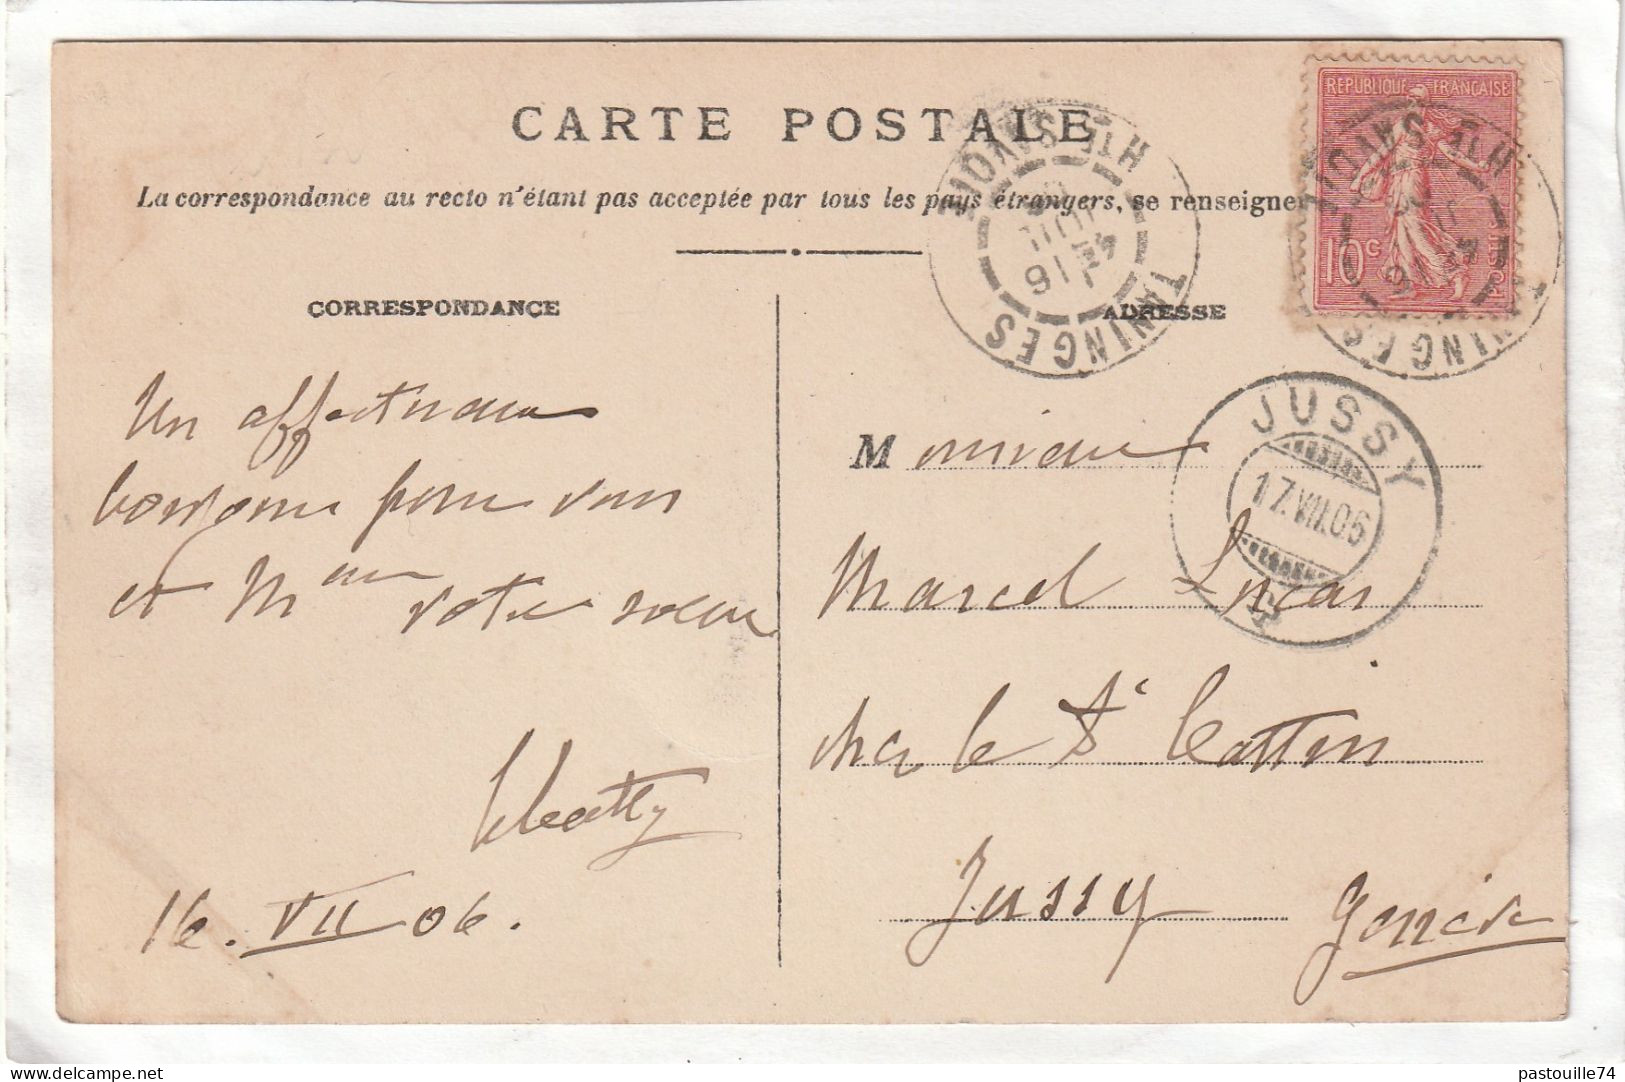 CARTE POSTALE
La correspondance au recto n'étant pas acceptée par tous les pays étrangers, se renseigner
CORRESPONDANCE
ADRESSE
REPUBLIQUE FRANÇAISE
10c
POSTES
TANINGES
HTE SAVOIE
16
JUIL
06
TANINGES
HTE SAVOIE
16
JUSSY
17.VII.06
Un affectueux
bonjour pour vous
et Mame votre soeur
16.VII 06.
Monsieur
Marcel Lucas
chez le Sr Cottin
Jussy Genève
pastouille74